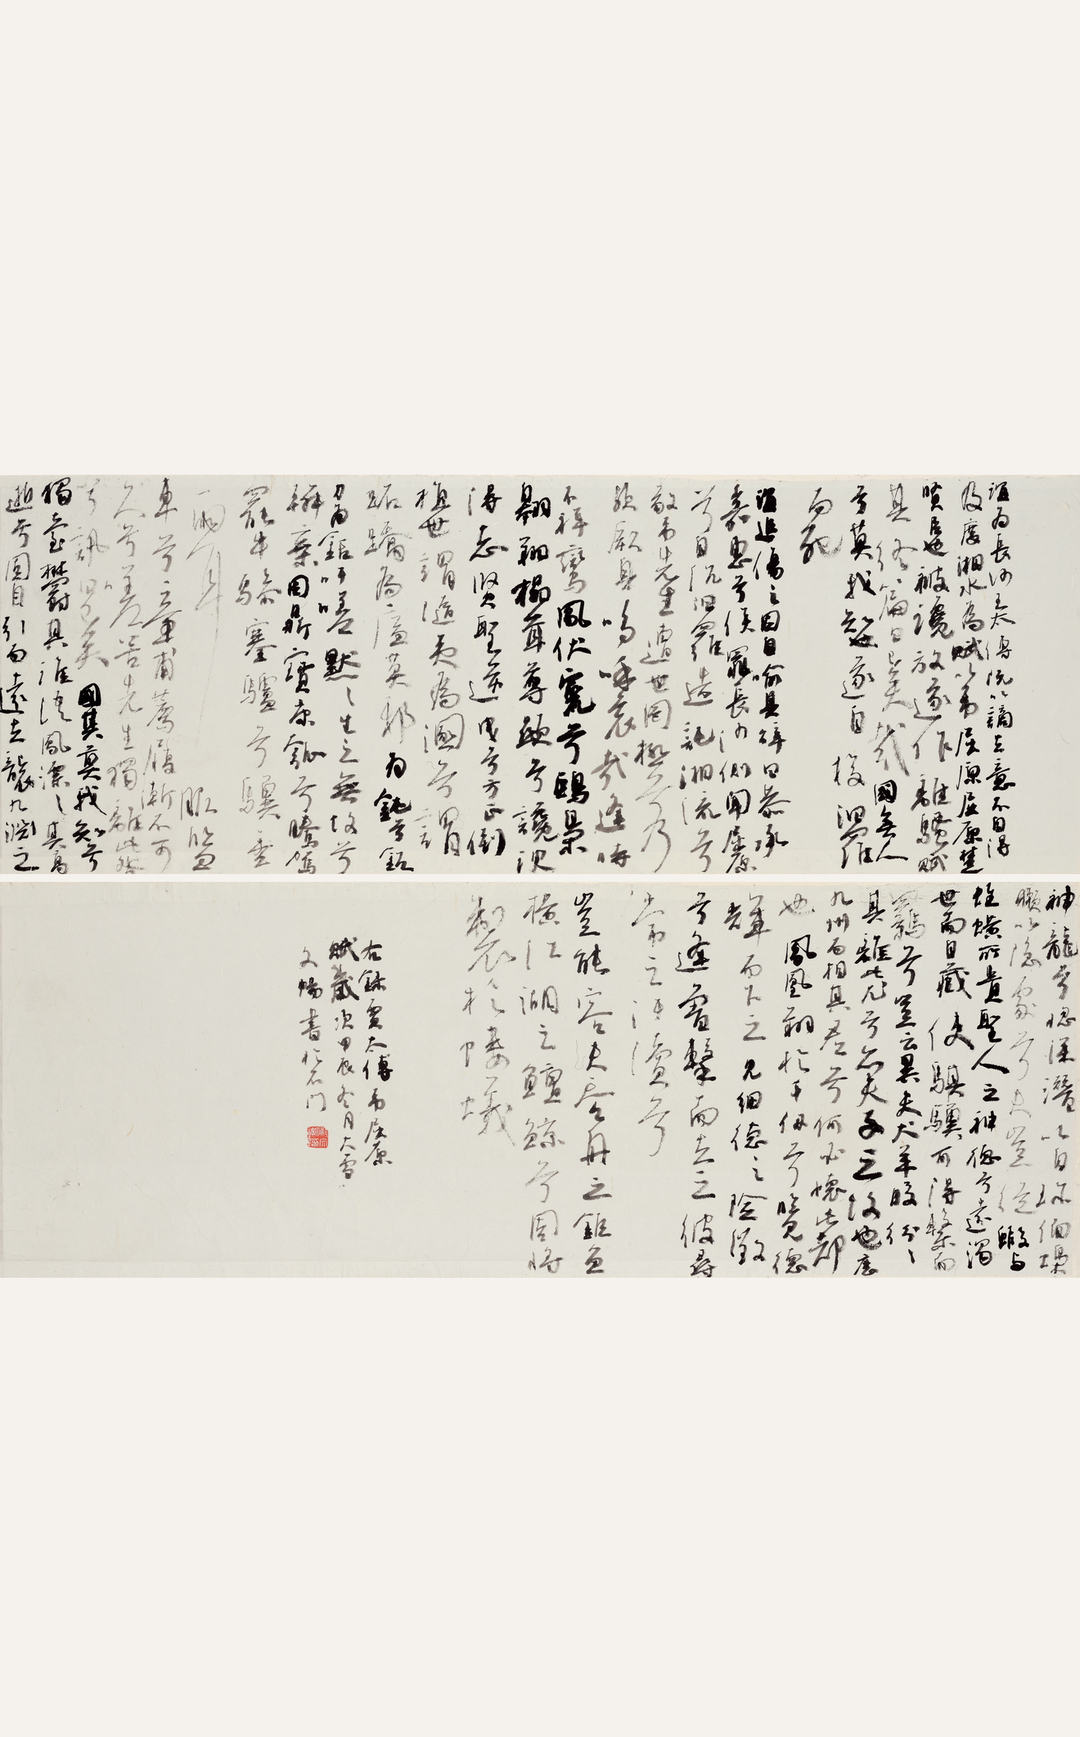 誼為長沙王太傅既以謫去意不自得
及度湘水為賦以弔屈原屈原楚
賢臣也被讒放逐作離騷賦
其終篇曰已矣哉國無人
兮莫我知也遂自投汨羅
而死
誼追傷之因自喻其辭曰恭承
嘉惠兮俟罪長沙側聞屈原
兮自沉汨羅造託湘流兮
敬弔先生遭世罔極兮乃
殞厥身嗚呼哀哉逢時
不祥鸞鳳伏竄兮鴟梟
翱翔闒茸尊顯兮讒諛
得志賢聖逆曳兮方正倒
植世謂隨夷為溷兮謂
跖蹻為廉莫邪為鈍兮鉛
刀為銛吁嗟默默生之無故兮
斡棄周鼎寶康瓠兮騰駕
罷牛驂蹇驢兮驥垂
兩耳
服鹽
車兮章甫薦履漸不可
久兮嗟苦先生獨離此咎
兮訊曰已矣國其莫我知兮
獨壹鬱其誰語鳳漂漂其高
逝兮固自引而遠去襲九淵之
神龍兮沕深潛以自珍偭蟂
獺以隱處兮夫豈從蝦與
蛭螾所貴聖人之神德兮遠濁
世而自藏使騏驥可得繫而
羈兮豈云異夫犬羊般紛紛
其離此尤兮亦夫子之故也歷
九州而相其君兮何必懷此都
也鳳凰翔於千仞兮覽德
輝而下之見細德之險徵
兮遙曾擊而去之彼尋
常之汙瀆兮
豈能容夫吞舟之巨魚
橫江湖之鱣鯨兮固將
制於螻蟻
右錄賈太傅弔屈原
賦歲次甲辰冬月大雪
文暢書於石門